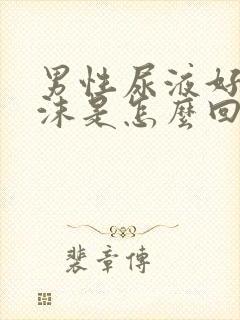 男性尿液好
沫是怎麼回
裴章傳